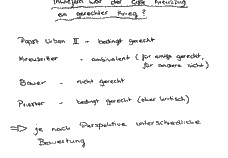 Inwiefern war der erste Kreuzzug
ein gerechter Krieg?
Papst Urban II - bedingt gerecht
Kreuzritter - ambivalent (für einige gerecht,
für andere nicht)
Bauer - nicht gerecht
Priester - bedingt gerecht (aber kritisch)
⇒ je nach Perspektive unterschiedliche
Bewertung